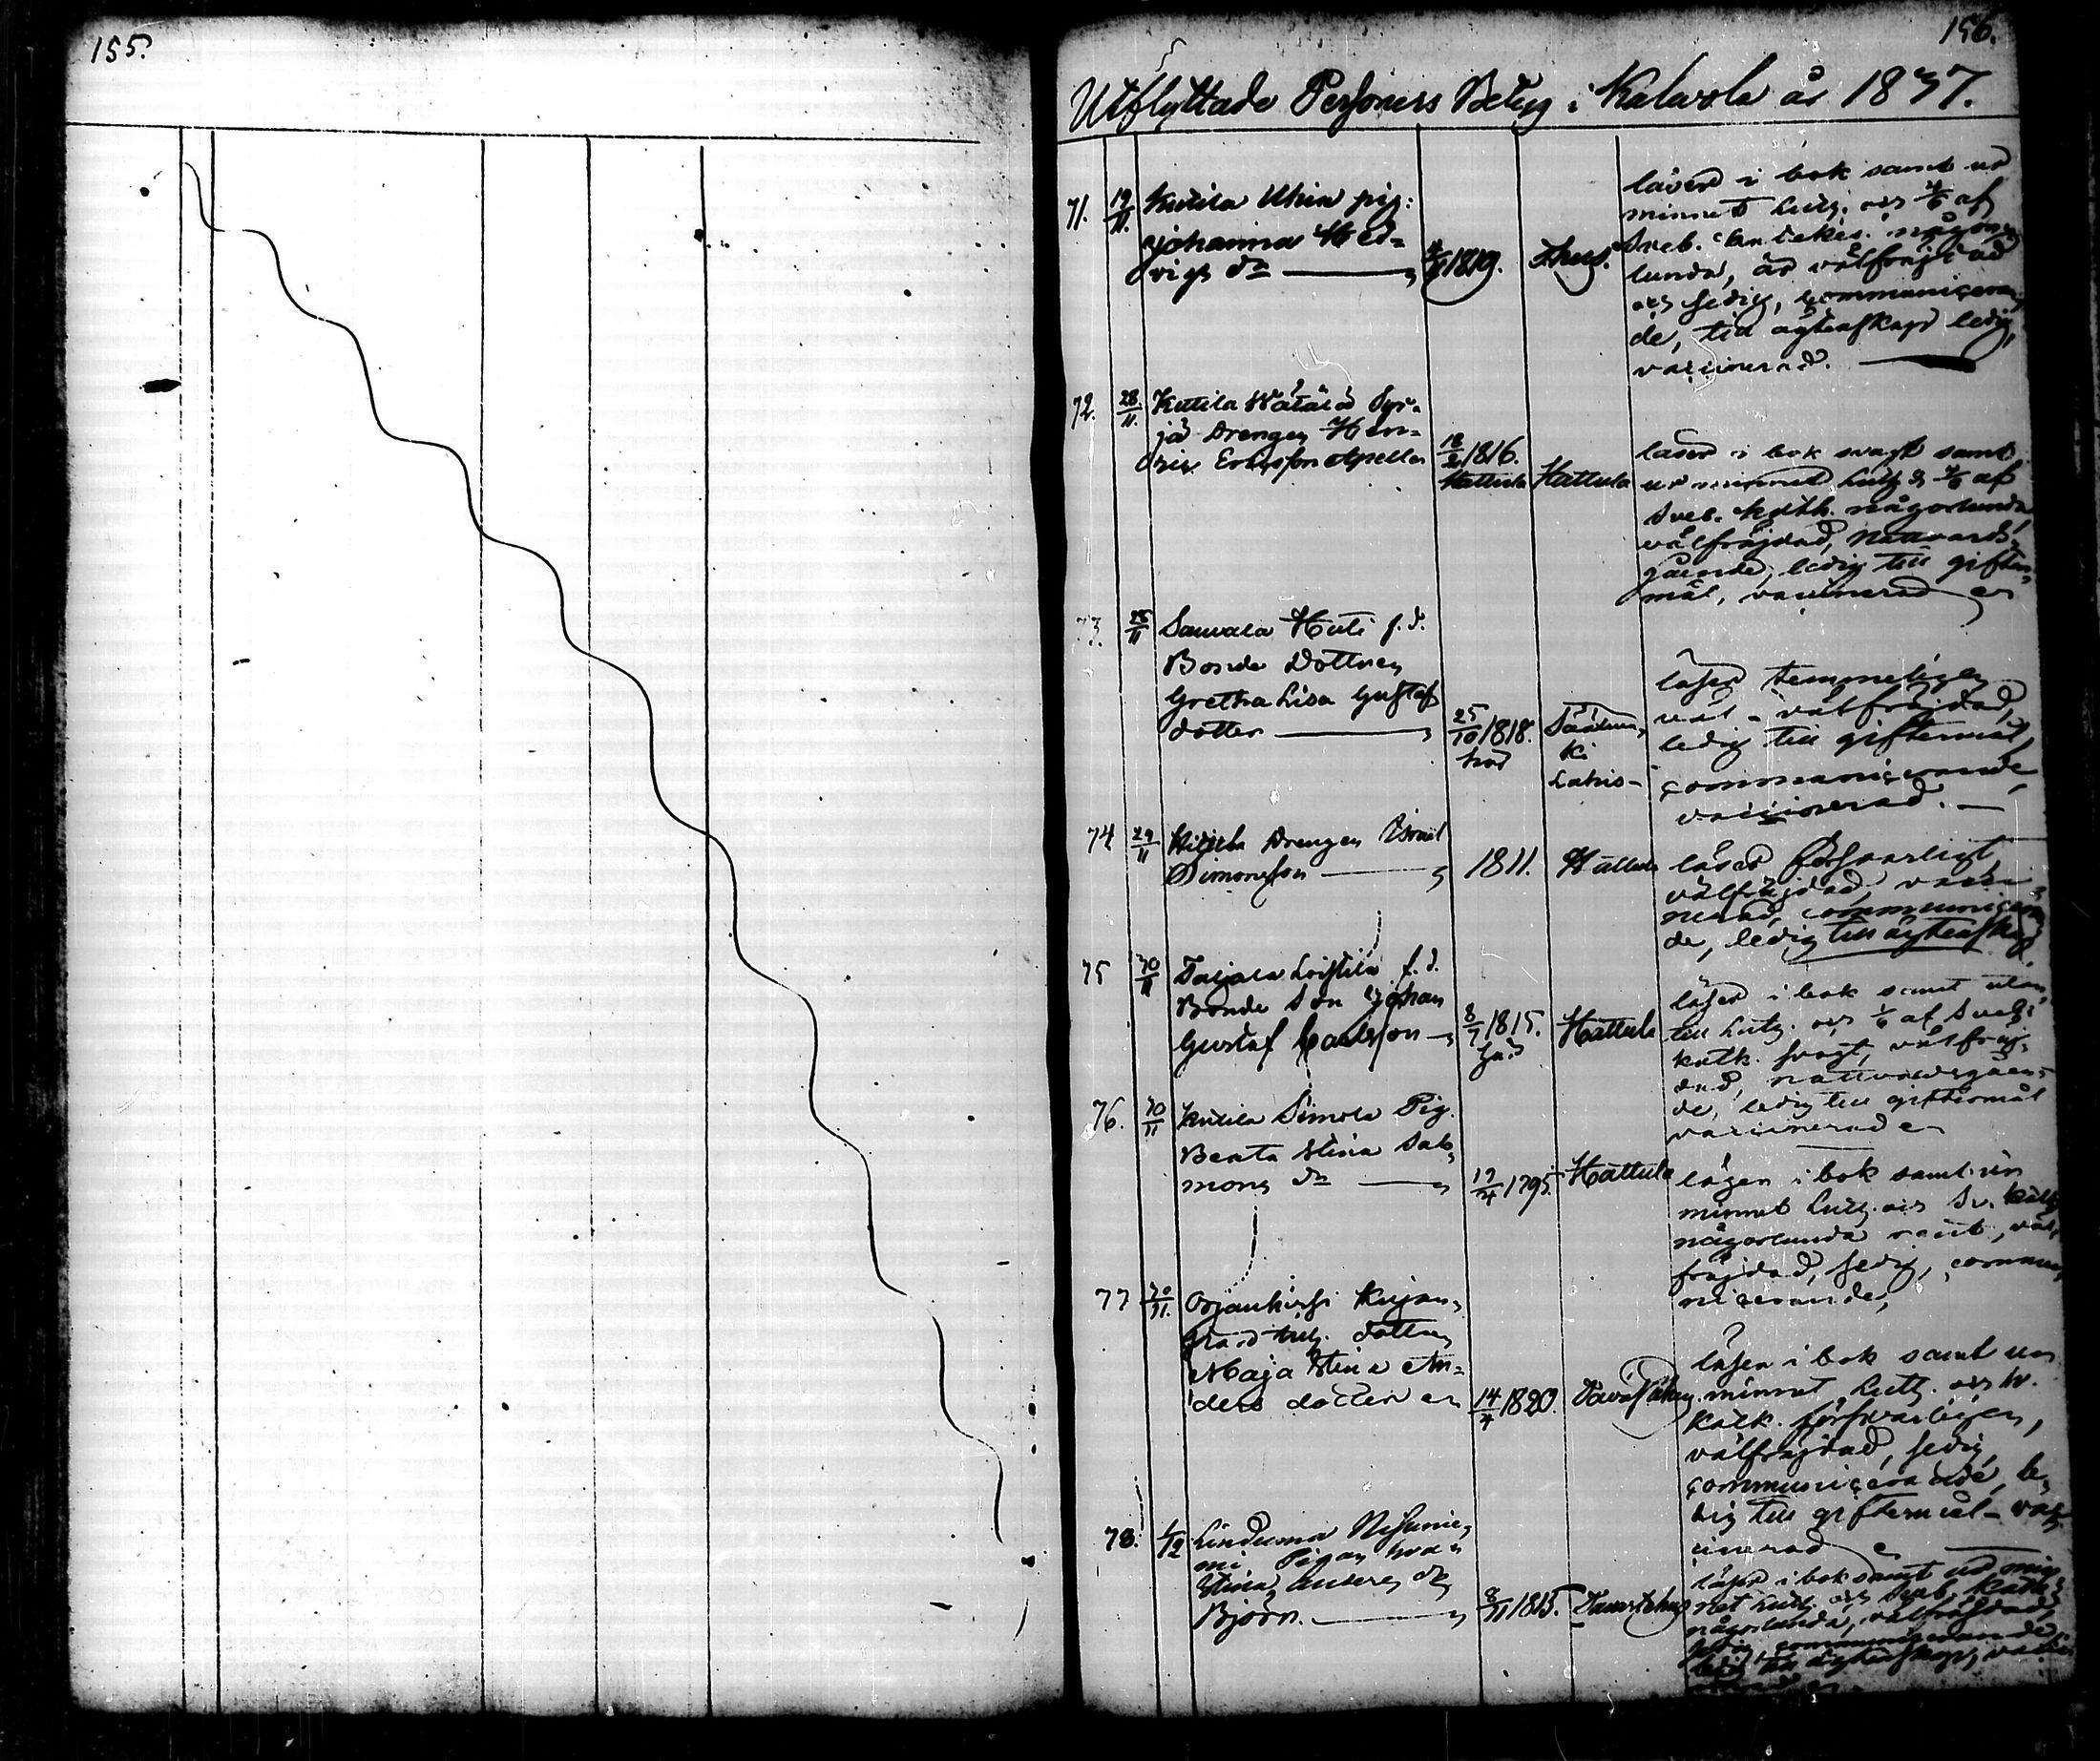 155.
156.
Utflyttade Personers Betyg i Kalvola år 1837.
71. 19/11. Kutila Uhia pig:
Johanna Hed=
vigs dr 1819. Thus.
läser i bok samt ur
minnet Lutz. och 4/6 af
Sveb. någor
lunda, är välfrejdad
och sedig, communiceran
de, till ägtenskap ledig,
vaccinerad.
72. 28/11. Kutila Wätälä Syr=
jä Drengen Hen=
ric Ericsson Apella 18/2 1816.
Hattula Hattula
läser i bok svagt samt
ur minnet Lutz & 4/6 af
Sveb. kath. någorlunda
välfräjdad, nattvards
gående, ledig till gifter
mål, vaccinerad
73. 28/11 Sauvala Huti f.d.
Bonde Dottren
Gretha Lisa Gustaf
dotter 25/10 1818.
Säämä
ki
Lahis
läser temmeligen
väl - välfräjdad,
ledig till giftermål,
communicerande
vaccinerad.
74 29/11 Drengen Israel
Simonsson 1811. Hattula
läser försvarligt,
välfräjdad, vacci
nerad, communiceran
de, ledig till ägtenskap.
75 30/11 Taljala f.d.
Bonde Son Johan
Gustaf Carlsson 8/7 1815. Hattula
läser i bok samt utan
till Lutz. och 1/6 af Sveb:
katk. svagt, välfräj
dad, nattvardsgåen=
de, ledig till giftermål
vaccinerad
76. 30/11 Kutila Simola Pig.
Beata Stina Salo
mons dr 17/4 1795. Hattula
läser i bok samt ur
minnet Lutz. och Sv. kath
någorlunda rent, väl
fräjdad, sedig, commu
nicerande,
77 30/11. Kujan
dottren
Maja Stina An=
ders dotter 14/4 1820. Tavastehus
läser i bok samt ur
minnet Lutz. och Sv.
katk. försvarligen,
välfräjdad, sedig,
communicerande, le
dig till giftermål - vac
cinerad
78. 1/12 Niemi
Pigan
Stina Anders dr
Björn. 8/11 1815. Tavastehus
läser i bok samt ur min
net Lutz. och Sveb. Kath.
någorlunda, välfräjdad,
sedig, communicerande,
ledig till ägtenskap,